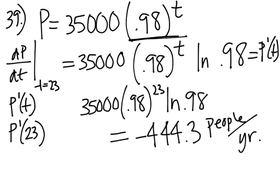 39.) P = 35000 (.98)^t
dP/dt |_{t=23} = 35000 (.98)^t ln .98 = P'(t)
P'(t) 35000 (.98)^23 ln .98
P'(23) = -444.3 people/yr.